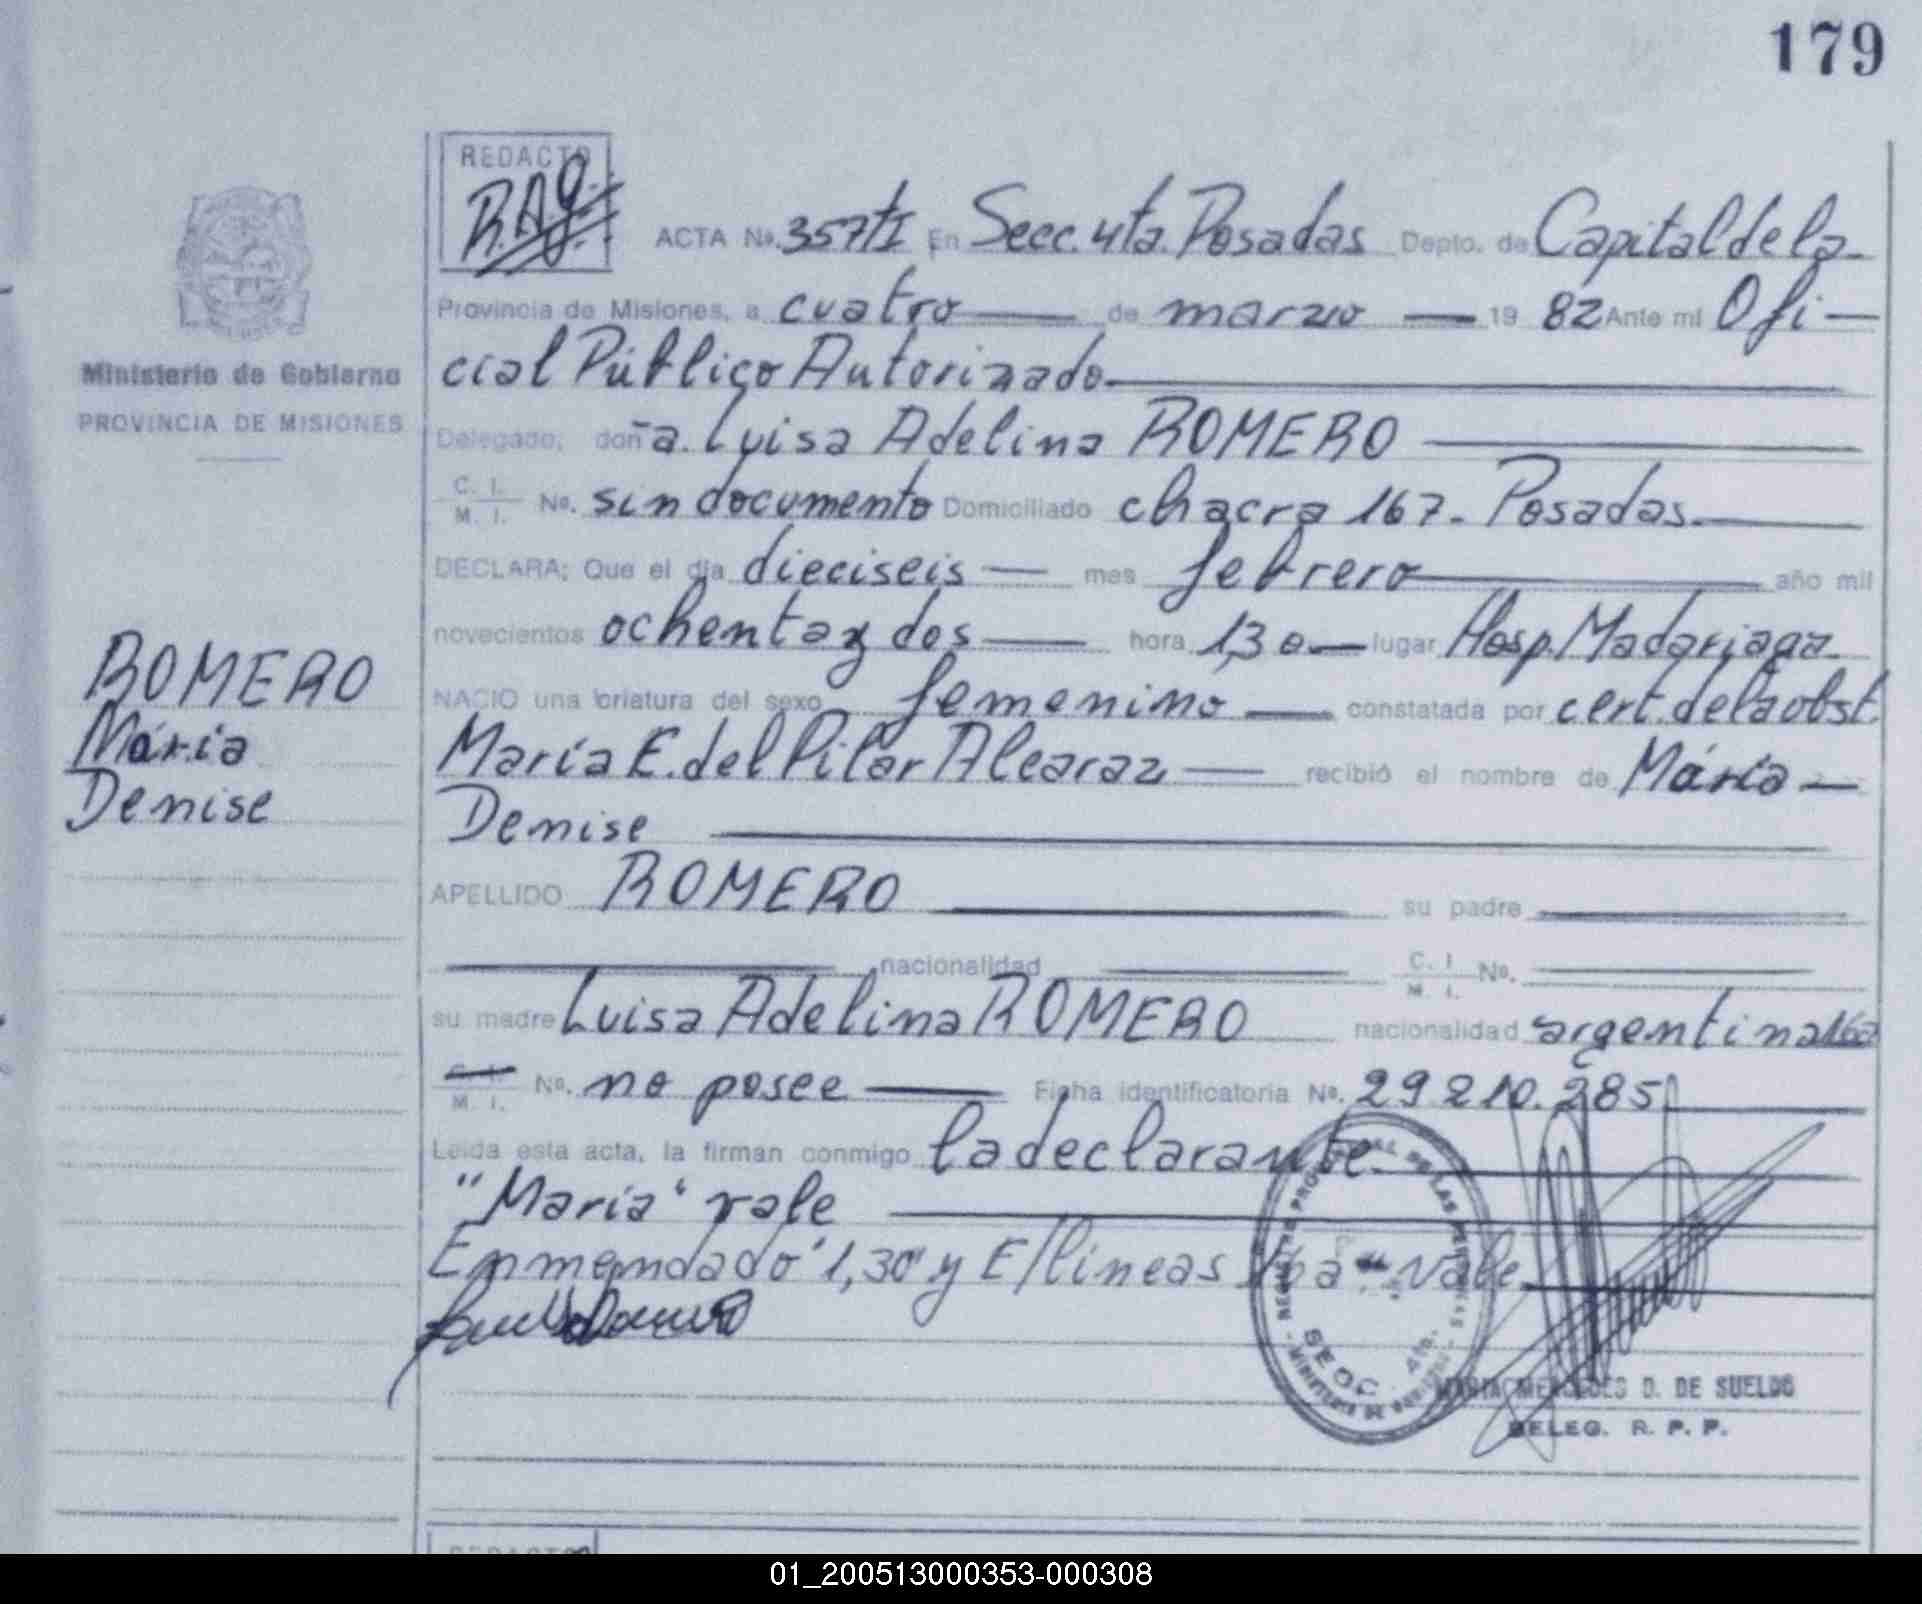 179
REDACTO
R.A.G.
ACTA No. 357tI En Secc. 4ta. Posadas Depto. de Capital de la
Provincia de Misiones, a cuatro de marzo 19 82 Ante mi Ofi-
cial Público Autorizado
Delegado; doña. Luisa Adelina ROMERO
C. I. M. I. No. sin documento Domiciliado chacra 167. Posadas.
DECLARA; Que el día dieciseis mes febrero año mil
novecientos ochenta y dos hora 1,30 lugar Hosp. Madariaga
NACIO una criatura del sexo femenino constatada por cert. de la obst.
María E. del Pilar Alcaraz recibió el nombre de María
Denise
APELLIDO ROMERO su padre
nacionalidad C. I. M. I. No.
su madre Luisa Adelina ROMERO nacionalidad argentina 16a
C. I. M. I. No. no posee Ficha identificatoria No. 29 210.285
Leída esta acta, la firman conmigo la declarante.
"María" vale
Enmendado "1,30" y E/lineas "16a" Vale
SECC. 4ta.
MARIA MERCEDES D. DE SUELDO
DELEG. R. P. P.
Ministerio de Gobierno
PROVINCIA DE MISIONES
ROMERO
María
Denise
REDACTO
01_200513000353-000308